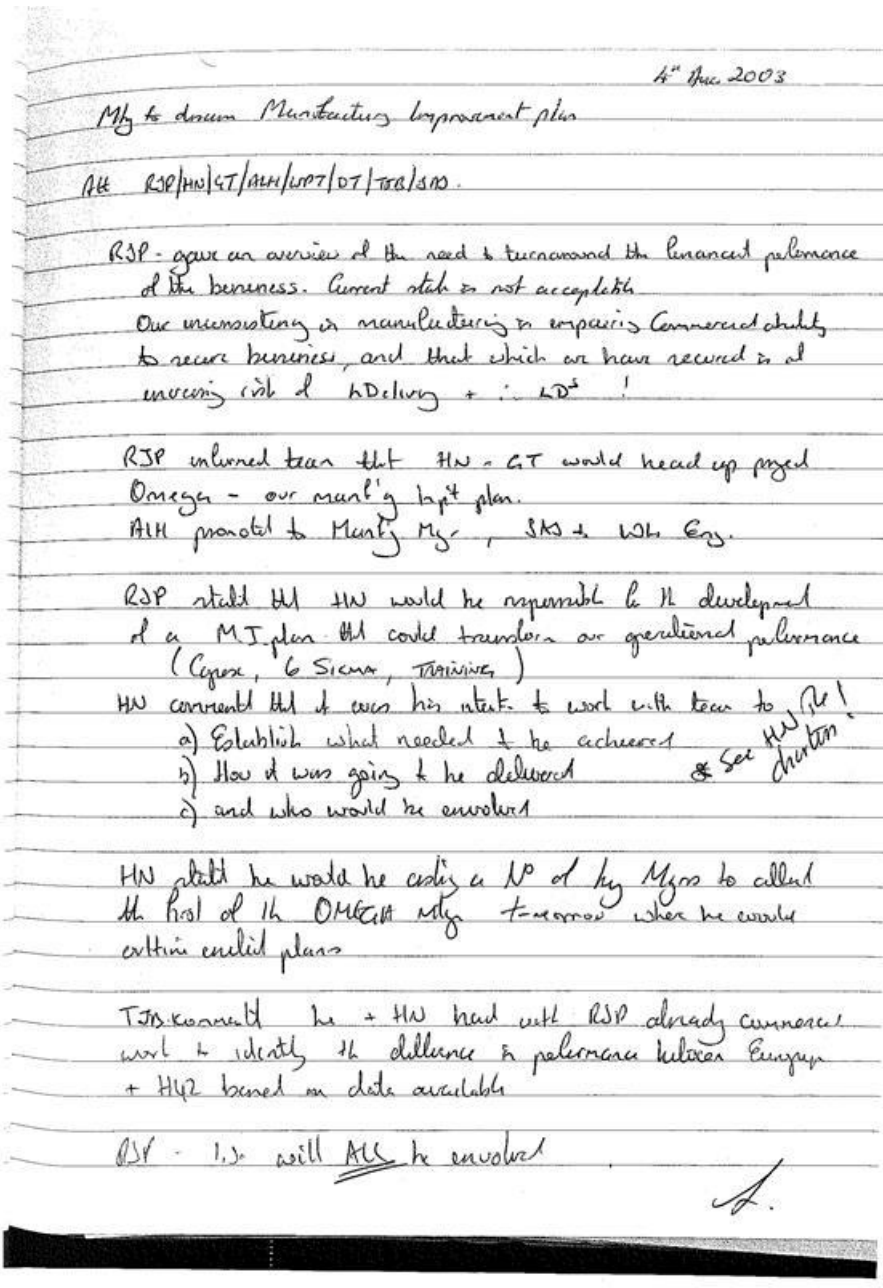 4th Aug 2003
Mtg to discuss Manufacturing Improvement plan
Att RJP/HN/GT/ALH/WPT/DT/TJB/SAS.
RJP - gave an overview of the need to turnaround the financial performance
of the business. Current state is not acceptable
Our inconsistency in manufacturing is impairing Commercial ability
to secure business, and that which we have secured is at
increasing risk of Delivery + ∴ LDs !
RJP informed team that HN - GT would head up project
Omega - our manf'g Impt plan.
ALH promoted to Manf'g Mgr, SAS to Eng.
RJP stated that HN would be responsible for the development
of a M.I plan that could transform our operational performance
(Capex, 6 SIGMA, TRAINING)
HN commented that it was his intent to work with team to
a) Establish what needed to be achieved
b) How it was going to be delivered
c) and who would be envolved
* See HN file!
HN stated he would be asking a No of key Mgrs to attend
the first of the OMEGA mtgs tomorrow where he would
outline initial plans
TJB he + HN had with RJP already commenced
work to identify the difference in performance between
+ H42 based on data available
RJP - will ALL be envolved